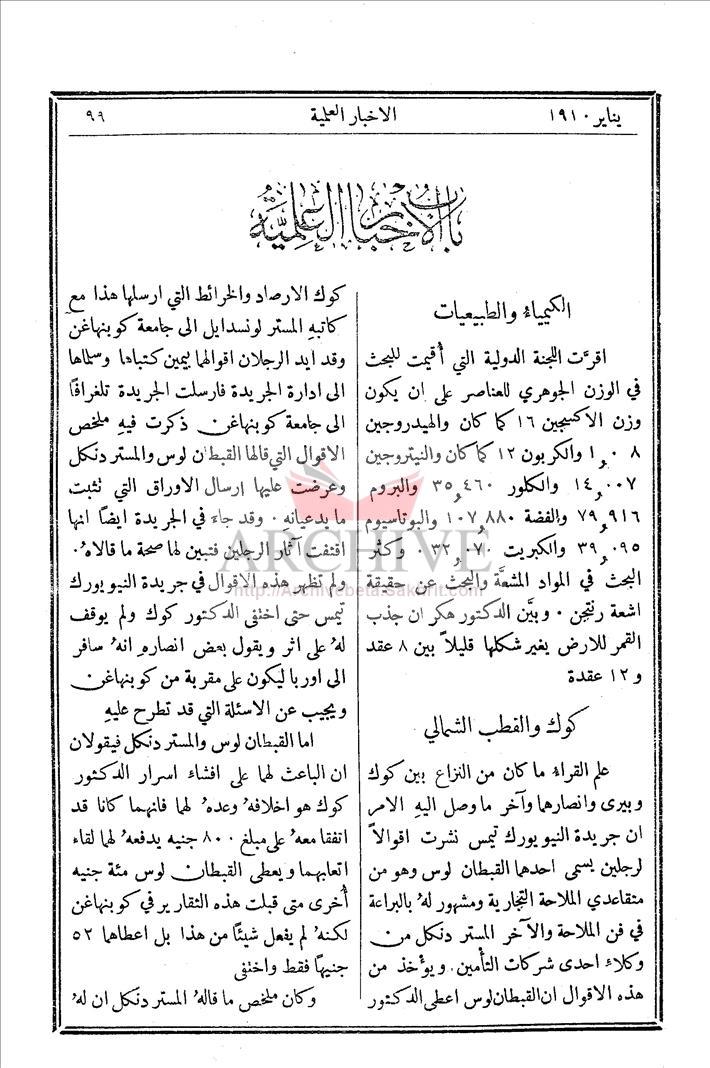 يناير ١٩١٠
الاخبار العلمية
٩٩
باب الاخبار العلمية
الكيمياءُ والطبيعيات
اقرَّت اللجنة الدولية التي أُقيمت للبحث
في الوزن الجوهري للعناصر على ان يكون
وزن الاكسجين ١٦ كما كان والهيدروجين
١,٠٠٨ والكربون ١٢ كما كان والنيتروجين
١٤,٠٠٧ والكلور ٣٥,٤٦٠ والبروم
٧٩,٩١٦ والفضة ١٠٧,٨٨٠ والبوتاسيوم
٣٩,٠٩٥ والكبريت ٣٢,٠٧٠ . وكثر
البحث في المواد المشعَّة والبحث عن حقيقة
اشعة رنتجن . وبيَّن الدكتور هكر ان جذب
القمر للارض يغير شكلها قليلاً بين ٨ عقد
و١٢ عقدة
كوك والقطب الشمالي
علم القراء ما كان من النزاع بين كوك
وبيرى وانصارهما وآخر ما وصل اليهِ الامر
ان جريدة النيويورك تيمس نشرت اقوالاً
لرجلين يسمى احدهما القبطان لوس وهو من
متقاعدي الملاحة التجارية ومشهور لهُ بالبراعة
في فن الملاحة والآخر المستر دنكل من
وكلاء احدى شركات التأمين . ويؤخذ من
هذه الاقوال ان القبطان لوس اعطى الدكتور
كوك الارصاد والخرائط التي ارسلها هذا مع
كاتبهِ المستر لونسدايل الى جامعة كوبنهاغن
وقد ايد الرجلان اقوالهما بيمين كتباها وسلماها
الى ادارة الجريدة فارسلت الجريدة تلغرافاً
الى جامعة كوبنهاغن ذكرت فيهِ ملخص
الاقوال التي قالها القبطان لوس والمستر دنكل
وعرضت عليها إرسال الاوراق التي تثبت
ما يدعيانهِ . وقد جاء في الجريدة ايضاً انها
اقتفت آثار الرجلين فتبين لها صحة ما قالاهُ .
ولم تظهر هذه الاقوال في جريدة النيويورك
تيمس حتى اختفى الدكتور كوك ولم يوقف
لهُ على اثر ويقول بعض انصارهِ انهُ سافر
الى اوربا ليكون على مقربة من كوبنهاغن
ويجيب عن الاسئلة التي قد تطرح عليهِ
اما القبطان لوس والمستر دنكل فيقولان
ان الباعث لهما على افشاء اسرار الدكتور
كوك هو اخلافهُ وعدهُ لهما فانهما كانا قد
اتفقا معهُ على مبلغ ٨٠٠ جنيه يدفعهُ لهما لقاء
اتعابهما ويعطى القبطان لوس مئة جنيه
أُخرى متى قبلت هذه التقارير في كوبنهاغن
لكنهُ لم يفعل شيئاً من هذا بل اعطاهما ٥٢
جنيهاً فقط واختفى
وكان ملخص ما قالهُ المستر دنكل ان لهُ
ARCHIVE
http://Archivebeta.Sakhrit.com